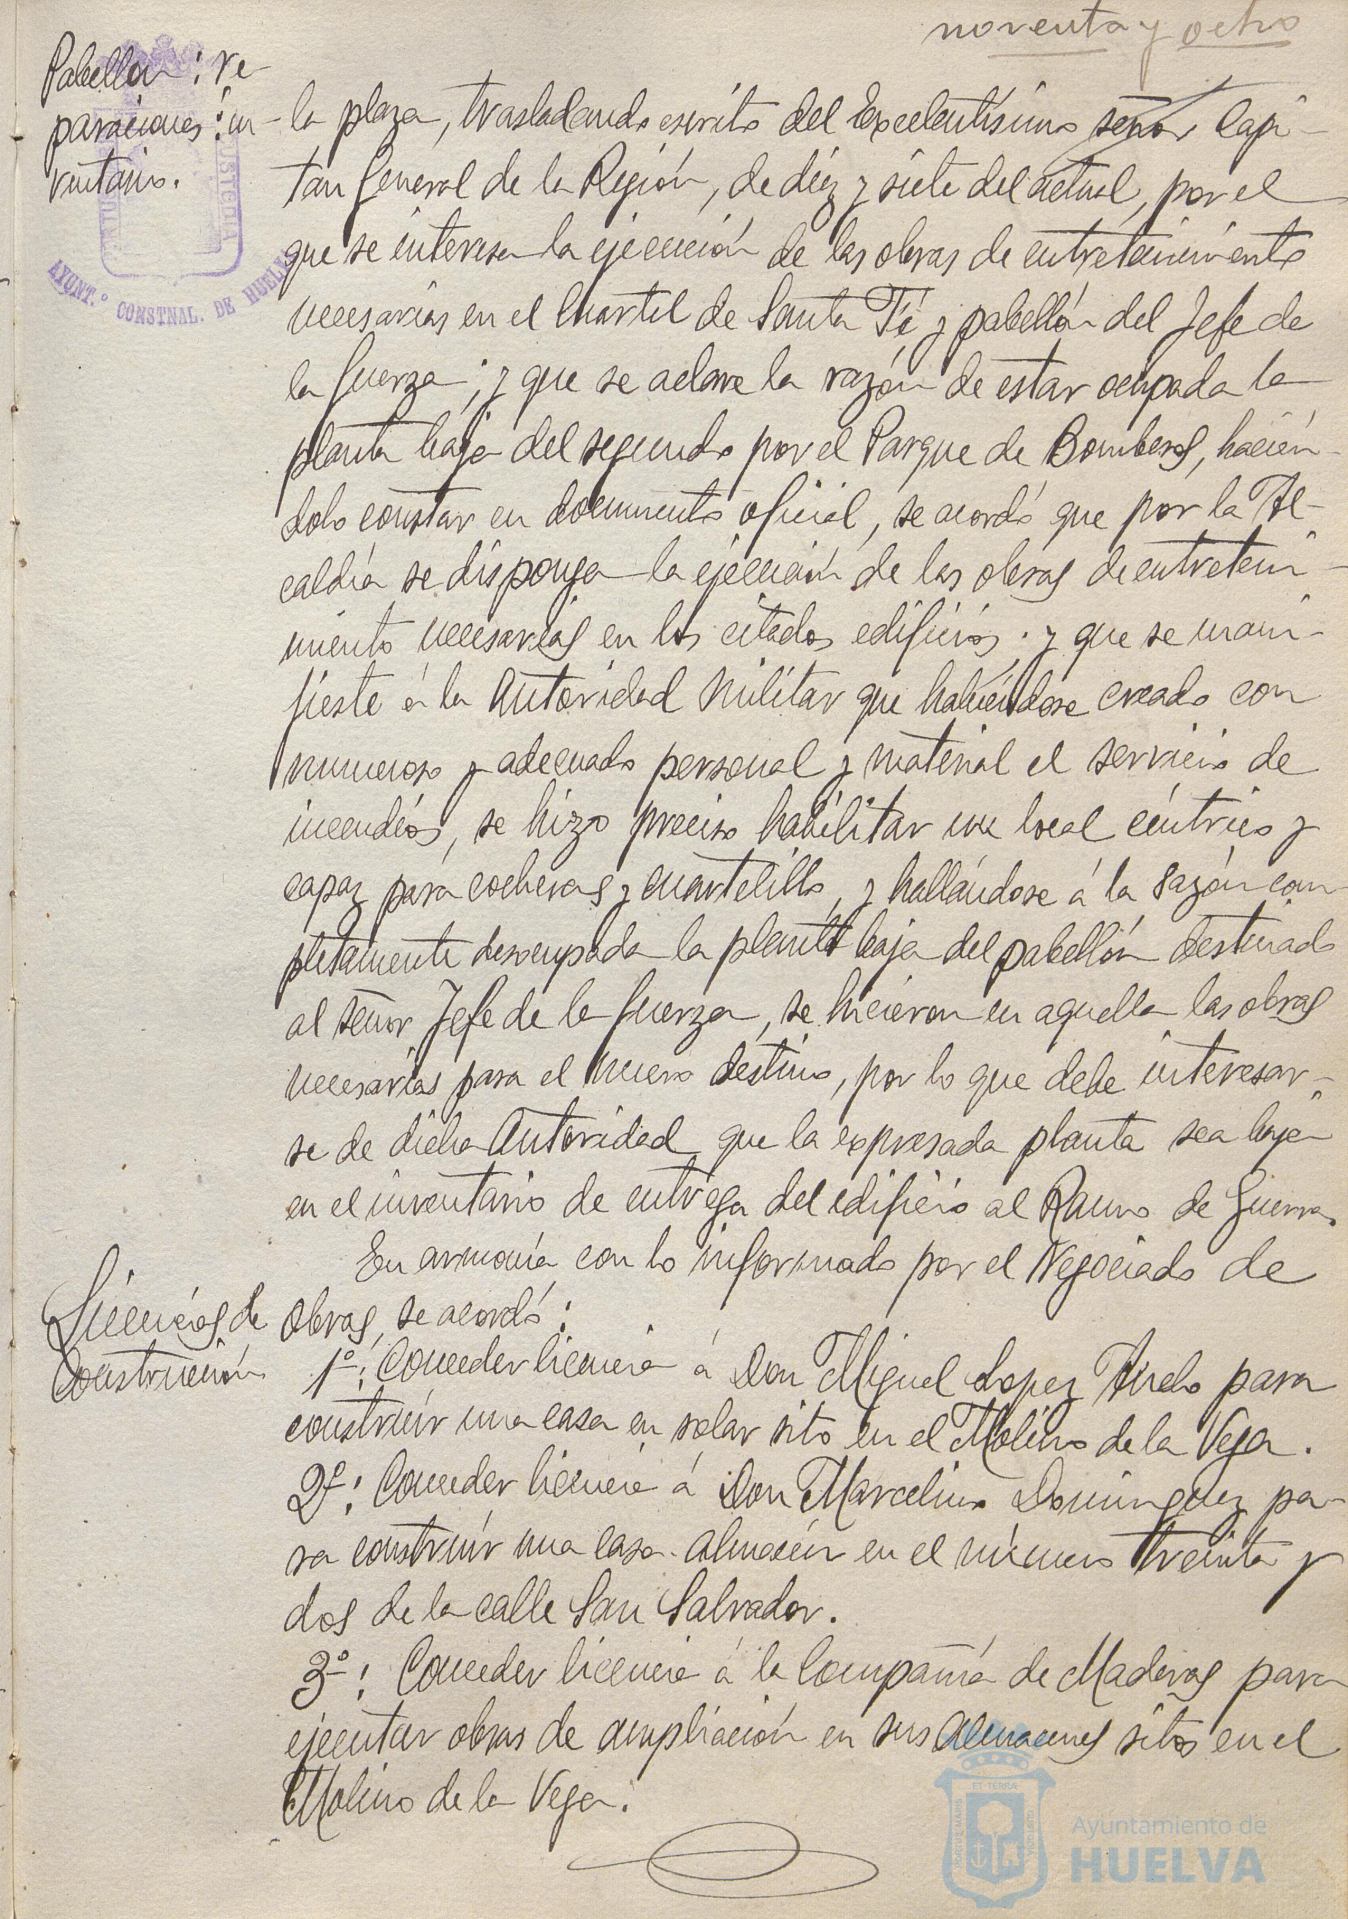 noventa y ocho
Pabellon: re-
paraciones: in-
ventario.
la plaza, trasladando escrito del Excelentísimo señor Capi-
tan General de la Región, de diéz y siete del actual, por el
que se interesa la ejecución de las obras de entretenimiento
necesarias en el Cuartel de Santa Fé y pabellón del Jefe de
la fuerza; y que se aclare la razón de estar ocupada la
planta baja del segundo por el Parque de Bomberos, hacién-
dolo constar en documento oficial, se acordó que por la Al-
caldía se disponga la ejecución de las obras de entreteni-
miento necesarias en los citados edificios; y que se mani-
fieste á la Autoridad Militar que habiéndose creado con
numeroso y adecuado personal y material el servicio de
incendios, se hizo preciso habilitar un local céntrico y
capaz para cocheras y cuartelillo, y hallándose á la sazón com-
pletamente desocupada la planta baja del pabellón destinado
al señor Jefe de la fuerza, se hicieron en aquella las obras
necesarias para el nuevo destino, por lo que debe interesar-
se de dicha Autoridad que la expresada planta sea baja
en el inventario de entrega del edificio al Ramo de Guerra.
En armonía con lo informado por el Negociado de
Licencias de
Construcción
Obras, se acordó:
1º: Conceder licencia á Don Miguel Lopez para
construír una casa en solar sito en el Molino de la Vega.
2º: Conceder licencia á Don Marcelino Dominguez pa-
ra construír una casa-almacén en el número treinta y
dos de la calle San Salvador.
3º: Conceder licencia á la Compañía de Maderas para
ejecutar obras de ampliación en sus almacenes sitos en el
Molino de la Vega.
AYUNT.º CONSTNAL. DE HUELVA
Ayuntamiento de
HUELVA